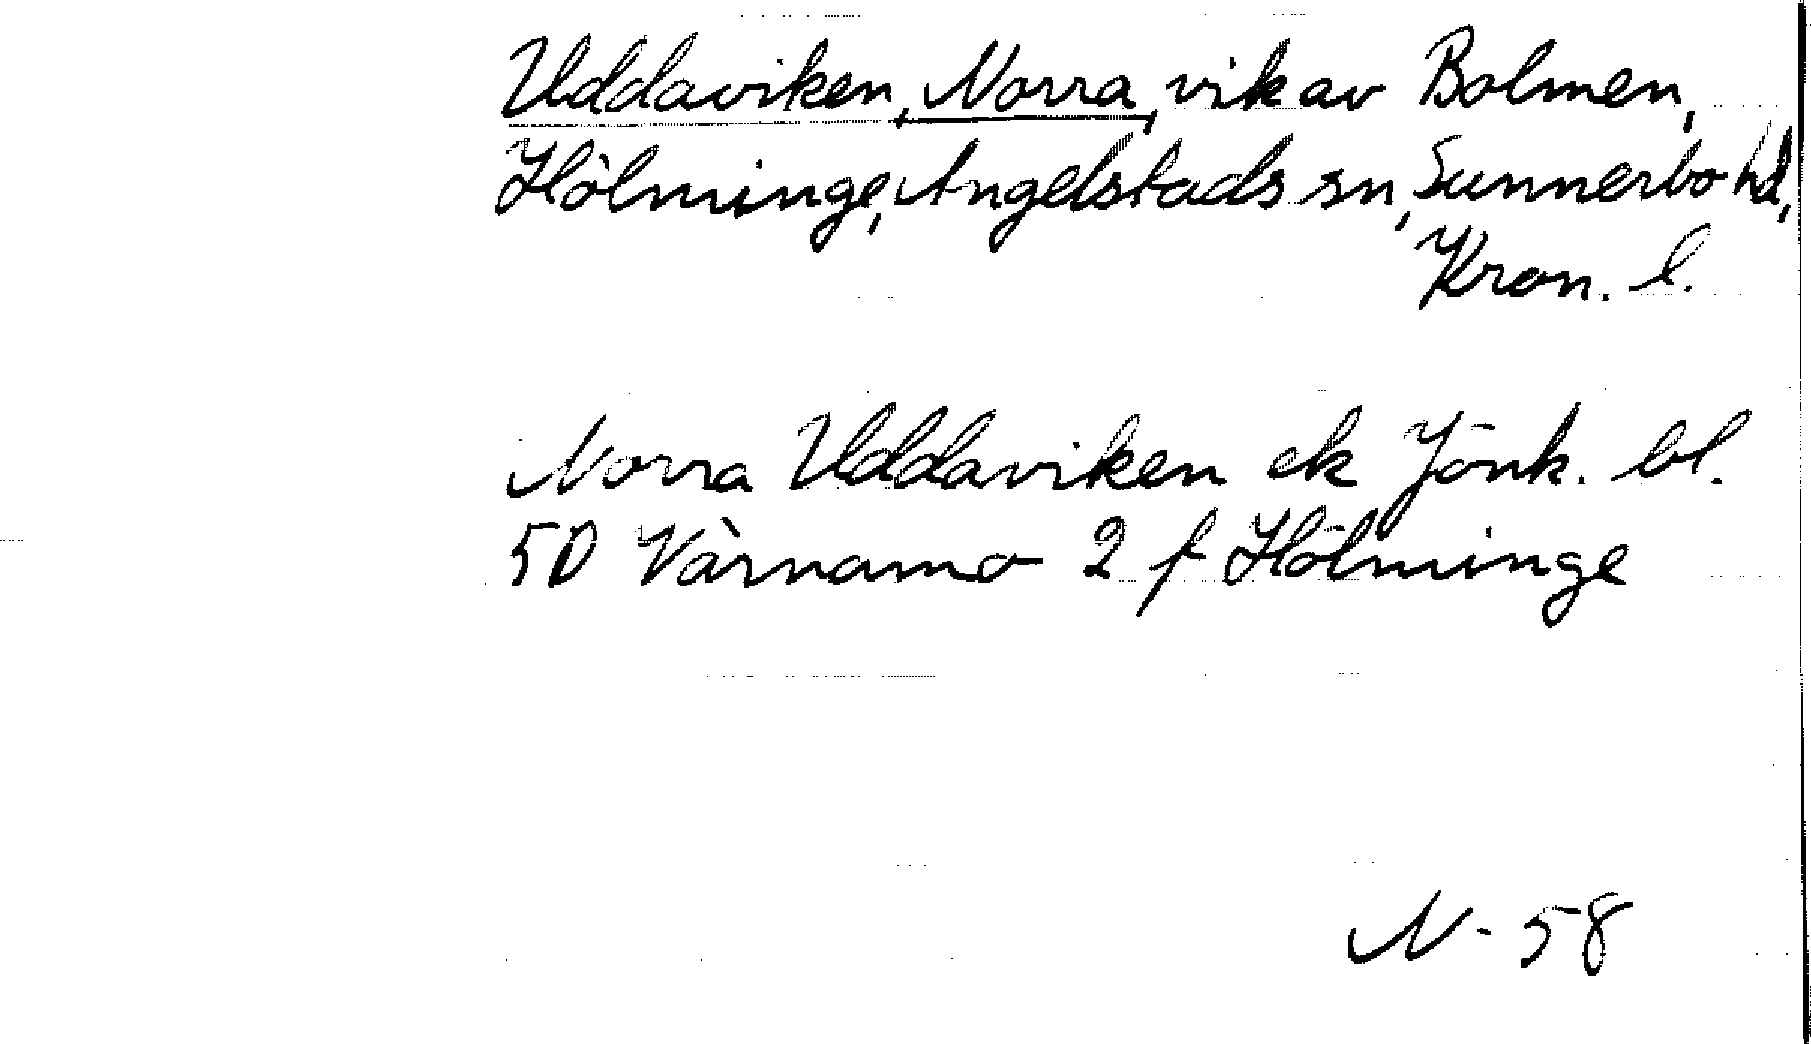 Uddaviken, Norra, vik av Bolmen,
Hölminge, Angelstads sn, Sunnerbo hd,
Kron. l.
Norra Uddaviken ek Jönk. bl.
5D Värnamo 2 f Hölminge
N-58